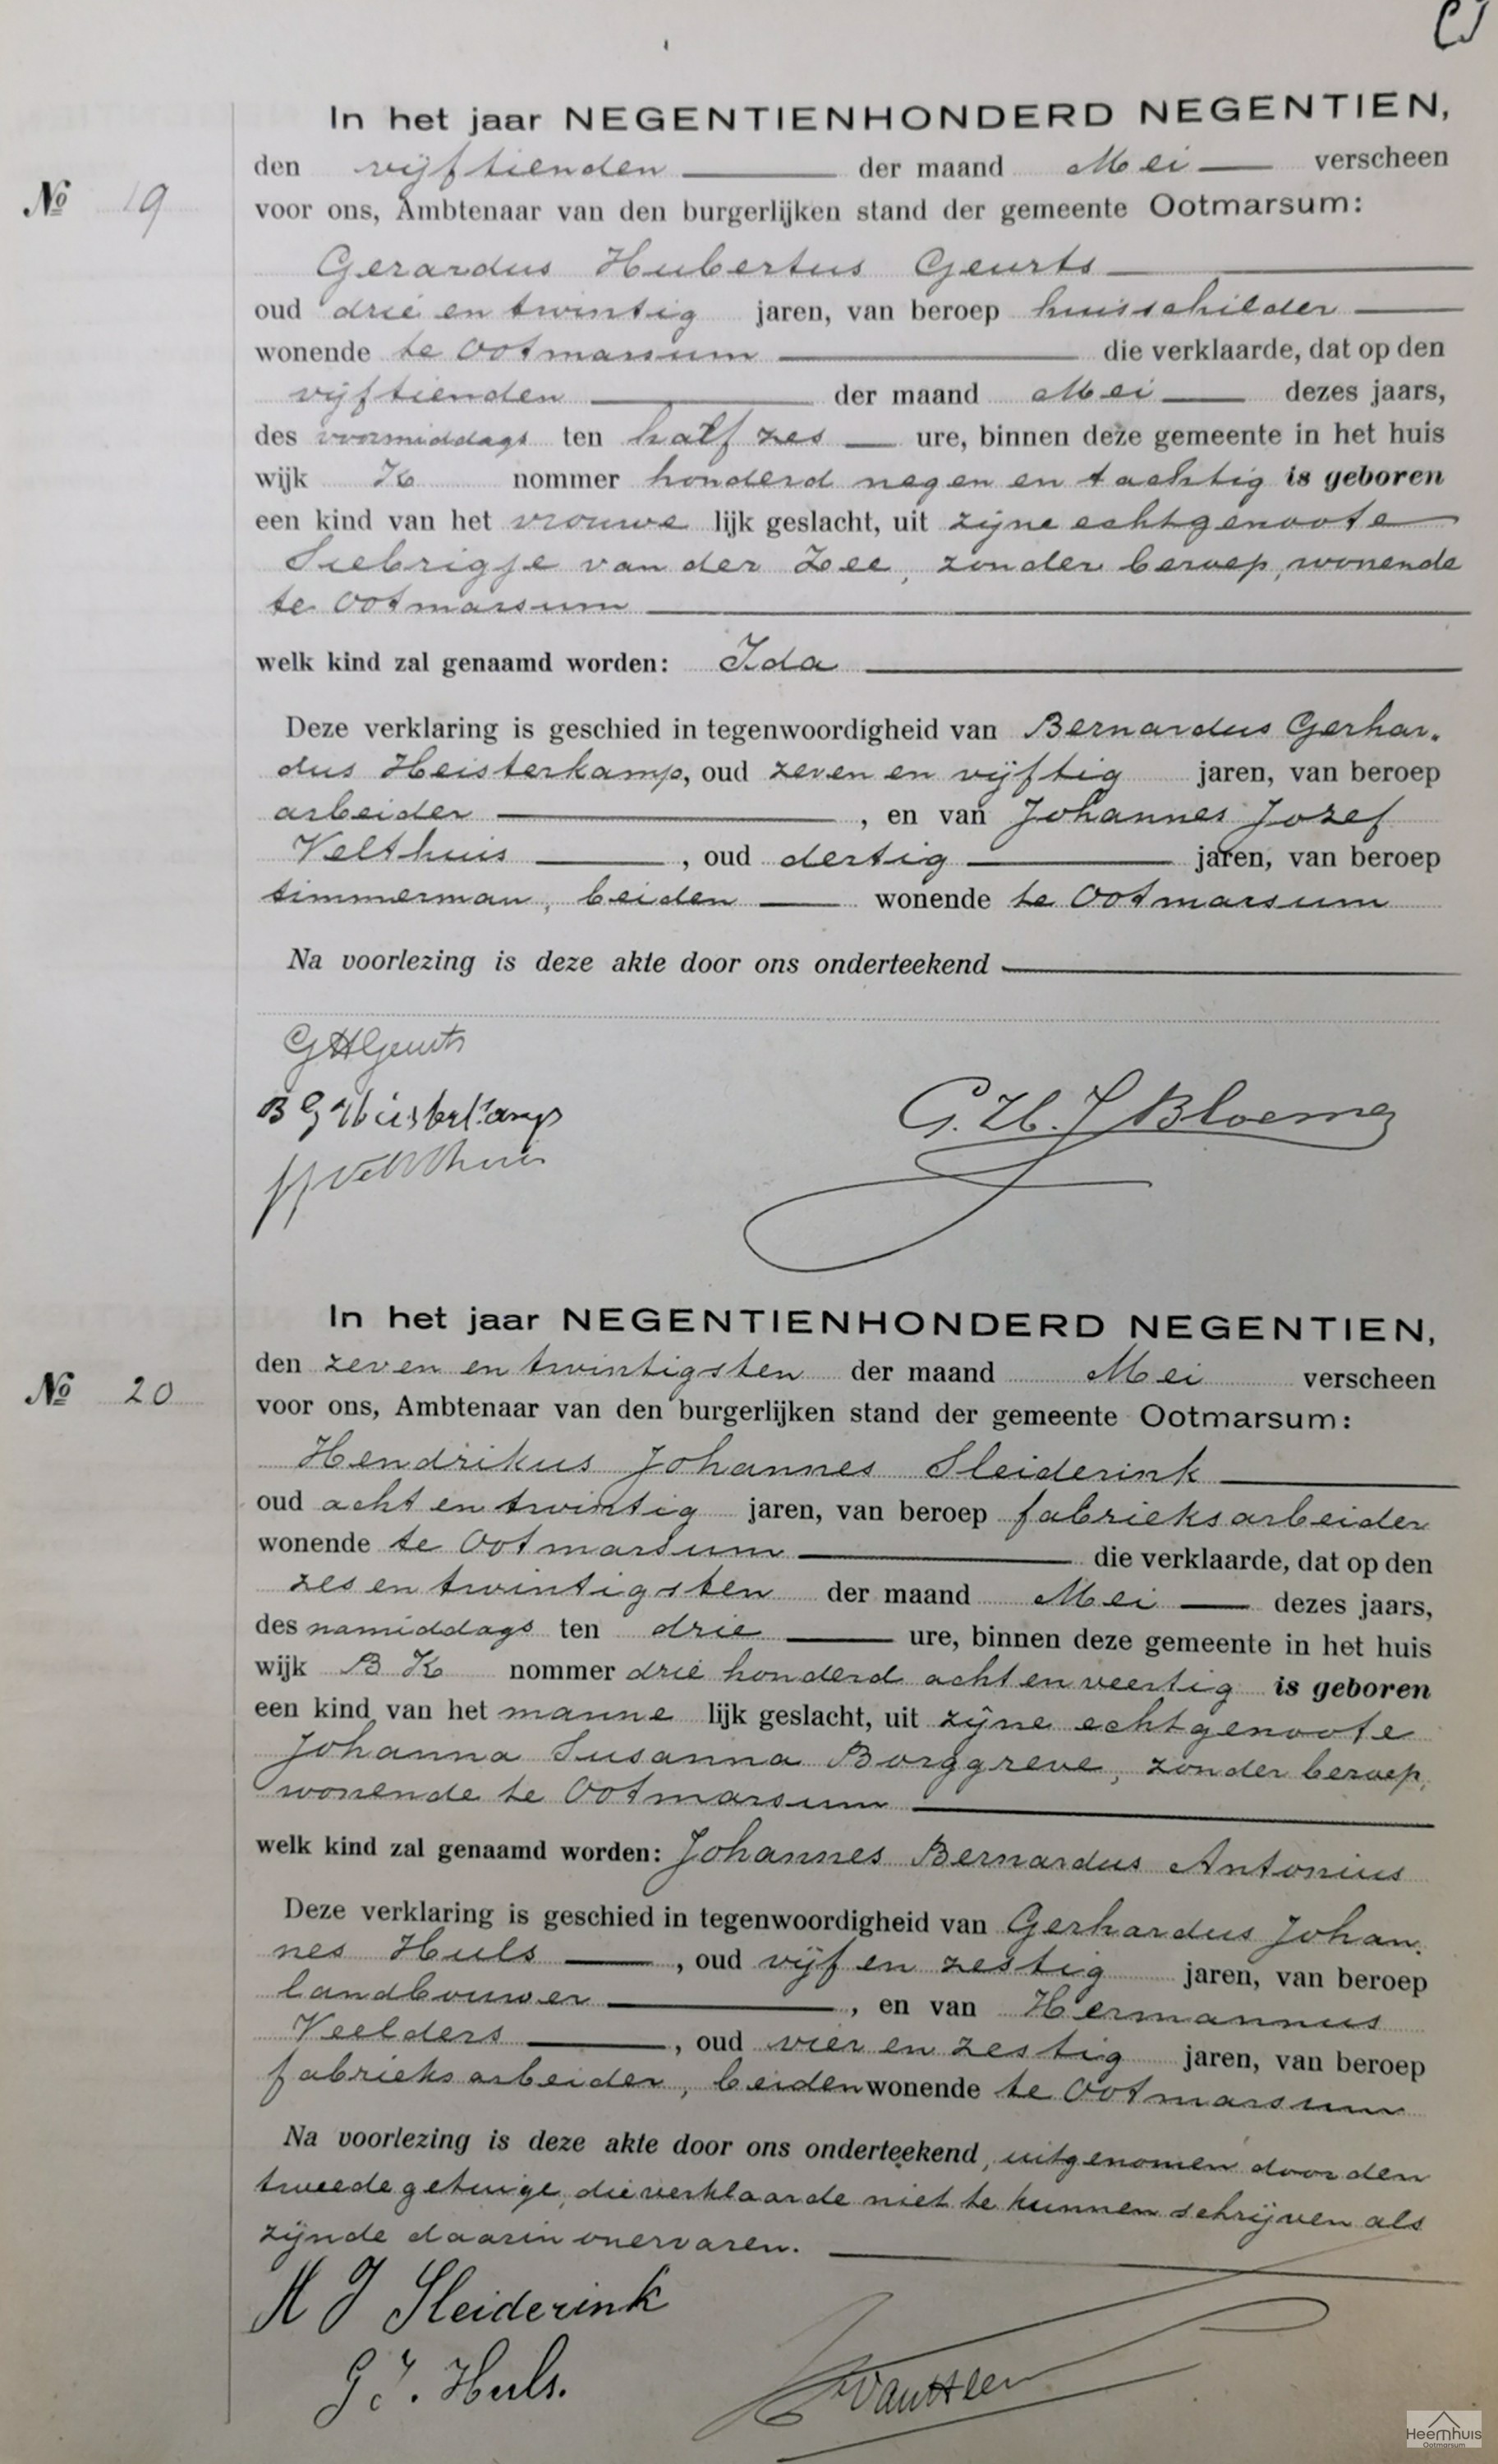 In het jaar NEGENTIENHONDERD NEGENTIEN,
den vijftienden der maand Mei verscheen
No 19
voor ons, Ambtenaar van den burgerlijken stand der gemeente Ootmarsum:
Gerardus Hubertus Geurts
oud drie en twintig jaren, van beroep huisschilder
wonende te Ootmarsum die verklaarde, dat op den
vijftienden der maand Mei dezes jaars,
des voormiddags ten half zes ure, binnen deze gemeente in het huis
wijk K nommer honderd negen en tachtig is geboren
een kind van het vrouwe lijk geslacht, uit zijne echtgenoote
Siebrigje van der Zee, zonder beroep, wonende
te Ootmarsum
welk kind zal genaamd worden: Ida
Deze verklaring is geschied in tegenwoordigheid van Bernardus Gerhar-
dus Heisterkamp, oud zeven en vijftig jaren, van beroep
arbeider, en van Johannes Jozef
Velthuis, oud dertig jaren, van beroep
timmerman, beiden wonende te Ootmarsum
Na voorlezing is deze akte door ons onderteekend
GHGeurts
B G Heisterkamp
G. H. J Bloemen
JJ Velthuis
In het jaar NEGENTIENHONDERD NEGENTIEN,
den zeven en twintigsten der maand Mei verscheen
No 20
voor ons, Ambtenaar van den burgerlijken stand der gemeente Ootmarsum:
Hendrikus Johannes Sleiderink
oud acht en twintig jaren, van beroep fabrieksarbeider
wonende te Ootmarsum die verklaarde, dat op den
zes en twintigsten der maand Mei dezes jaars,
des namiddags ten drie ure, binnen deze gemeente in het huis
wijk B K nommer drie honderd acht en veertig is geboren
een kind van het manne lijk geslacht, uit zijne echtgenoote
Johanna Susanna Borggreve, zonder beroep,
wonende te Ootmarsum
welk kind zal genaamd worden: Johannes Bernardus Antonius
Deze verklaring is geschied in tegenwoordigheid van Gerhardus Johan-
nes Huls, oud vijf en zestig jaren, van beroep
landbouwer, en van Hermannus
Veelders, oud vier en zestig jaren, van beroep
fabrieksarbeider, beiden wonende te Ootmarsum
Na voorlezing is deze akte door ons onderteekend, uitgenomen door den
tweede getuige, die verklaarde niet te kunnen schrijven als
zijnde daarin onervaren.
H J Sleiderink
G J. Huls.
Heemhuis
Ootmarsum